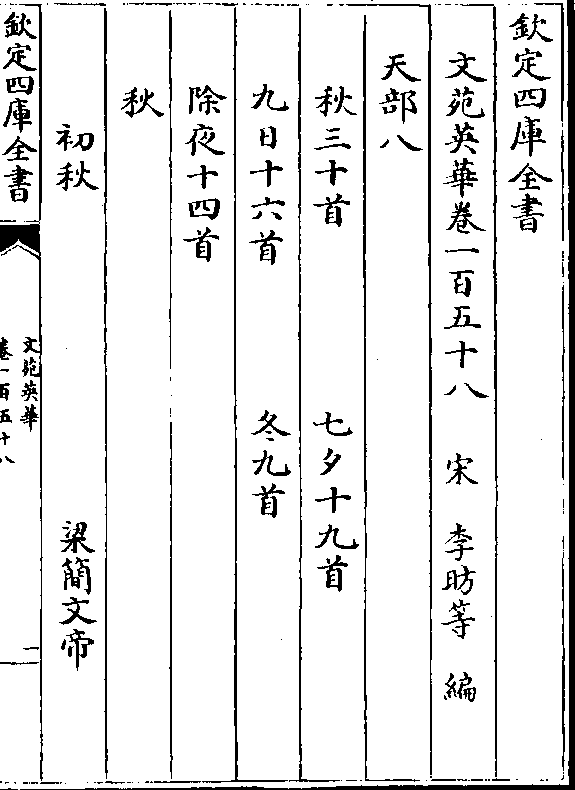 欽定四庫全書
文苑英華卷一百五十八 宋 李昉等 編
天部八
秋三十首 七夕十九首
九日十六首 冬九首
除夜十四首
秋
初秋 梁簡文帝
欽定四庫全書
文苑英華
卷一百五十八
一